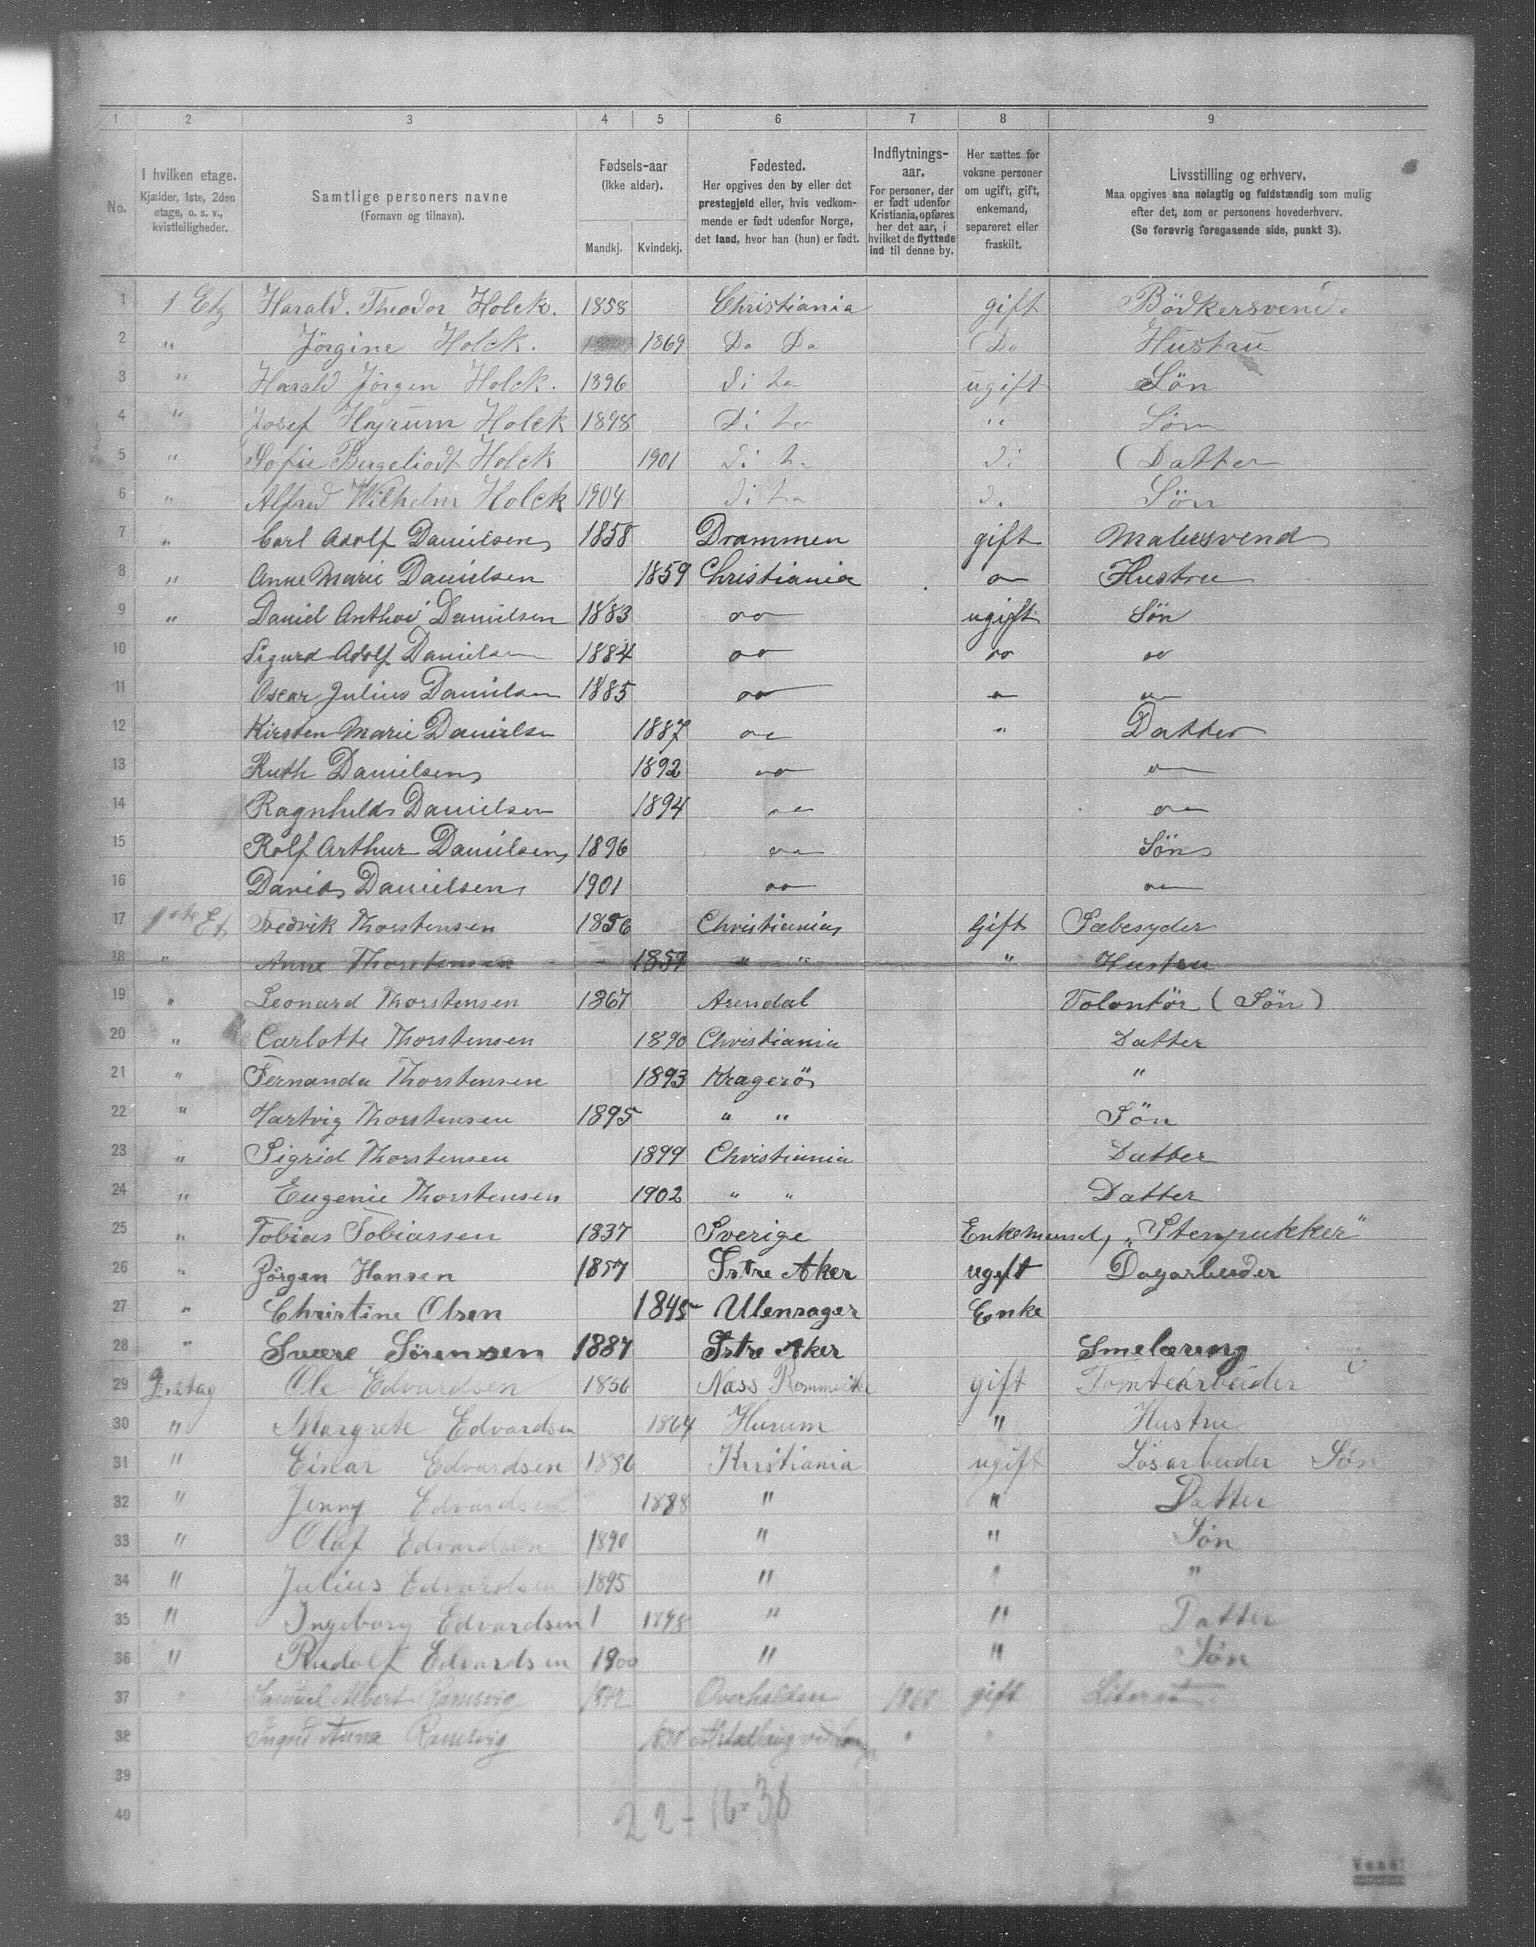 1 2 3 4 5 6 7 8 9
No.
I hvilken etage.
Kjælder, 1ste, 2den
etage, o. s. v.,
kvistleiligheder.
Samtlige personers navne
(Fornavn og tilnavn).
Fødsels-aar
(ikke alder).
Mandkj. Kvindekj.
Fødested.
Her opgives den by eller det
prestegjeld eller, hvis vedkom-
mende er født udenfor Norge,
det land, hvor han (hun) er født.
Indflytnings-
aar.
For personer, der
er født udenfor
Kristiania, opføres
her det aar, i
hvilket de flyttede
ind til denne by.
Her sættes for
voksne personer
om ugift, gift,
enkemand,
separeret eller
fraskilt.
Livsstilling og erhverv.
Maa opgives saa nøiagtig og fuldstændig som mulig
efter det, som er personens hovederhverv.
(Se forøvrig foregaaende side, punkt 3).
1 1 Etg Harald. Theodor Holck. 1858 Christiania gift Bödkersvend.
2 " Jörgine Holck. 1869 Do Do Do Hustru
3 " Harald Jörgen Holck. 1896 Di to ugift Sön
4 " Josef Hyrum Holck 1898 Di to " Sön
5 " Sofie Holck 1901 Di to Di Datter
6 " Alfred Wilhelm Holck 1904 Di to D. Sön
7 " Carl Adolf Danielsen 1858 Drammen gift Malersvend
8 " Anne Marie Danielsen 1859 Christiania Hustru
9 " Daniel Danielsen 1883 ugift Sön
10 Sigurd Adolf Danielsen 1884
11 Oscar Julius Danielsen 1885
12 Kirsten Marie Danielse 1887 " Datter
13 Ruth Danielsen 1892
14 Ragnhild Danielsen 1894
15 Rolf Arthur Danielsen 1896 Sön
16 David Danielsen 1901
17 Et Fredrik Thorstensen 1856 Christiania Gift Sæbesyder
18 " Anne Thorstensen 1857 " " " Hustru
19 " Leonard Thorstensen 1867 Arendal Volontør (Sön)
20 " Carlotte Thorstensen 1890 Christiania Datter
21 " Fernanda Thorstensen 1893 Kragerö "
22 " Hartvig Thorstensen 1895 " " Sön
23 " Sigrid Thorstensen 1899 Christiania Datter
24 " Eugenie Thorstensen 1902 " " Datter
25 " Tobias Tobiassen 1837 Sverige Enkemand, "Stenpukker"
26 " Jörgen Hansen 1857 Østre Aker ugift Dagarbeider
27 " Christine Olsen 1845 Ulensager Enke
28 " Sverre Sörensen 1887 Østre Aker Smelæreng
29 2 etag Ole Edvardsen 1856 gift Tomtearbeider
30 " Margrete Edvardsen 1864 Hurum " Hustru
31 " Einar Edvardsen 1886 Kristiania ugift Lösarbeider Sön
32 " Jenny Edvardsen 1888 " " Datter
33 " Olaf Edvardsen 1890 " " Sön
34 " Julius Edvardsen 1895 " " "
35 " Ingeborg Edvardsen 1 1898 " " Datter
36 " Rudolf Edvardsen 1900 " " Sön
37 " Samuel Albert Overhalden gift
38 Ingrid Anna " "
39
40
22-16-38